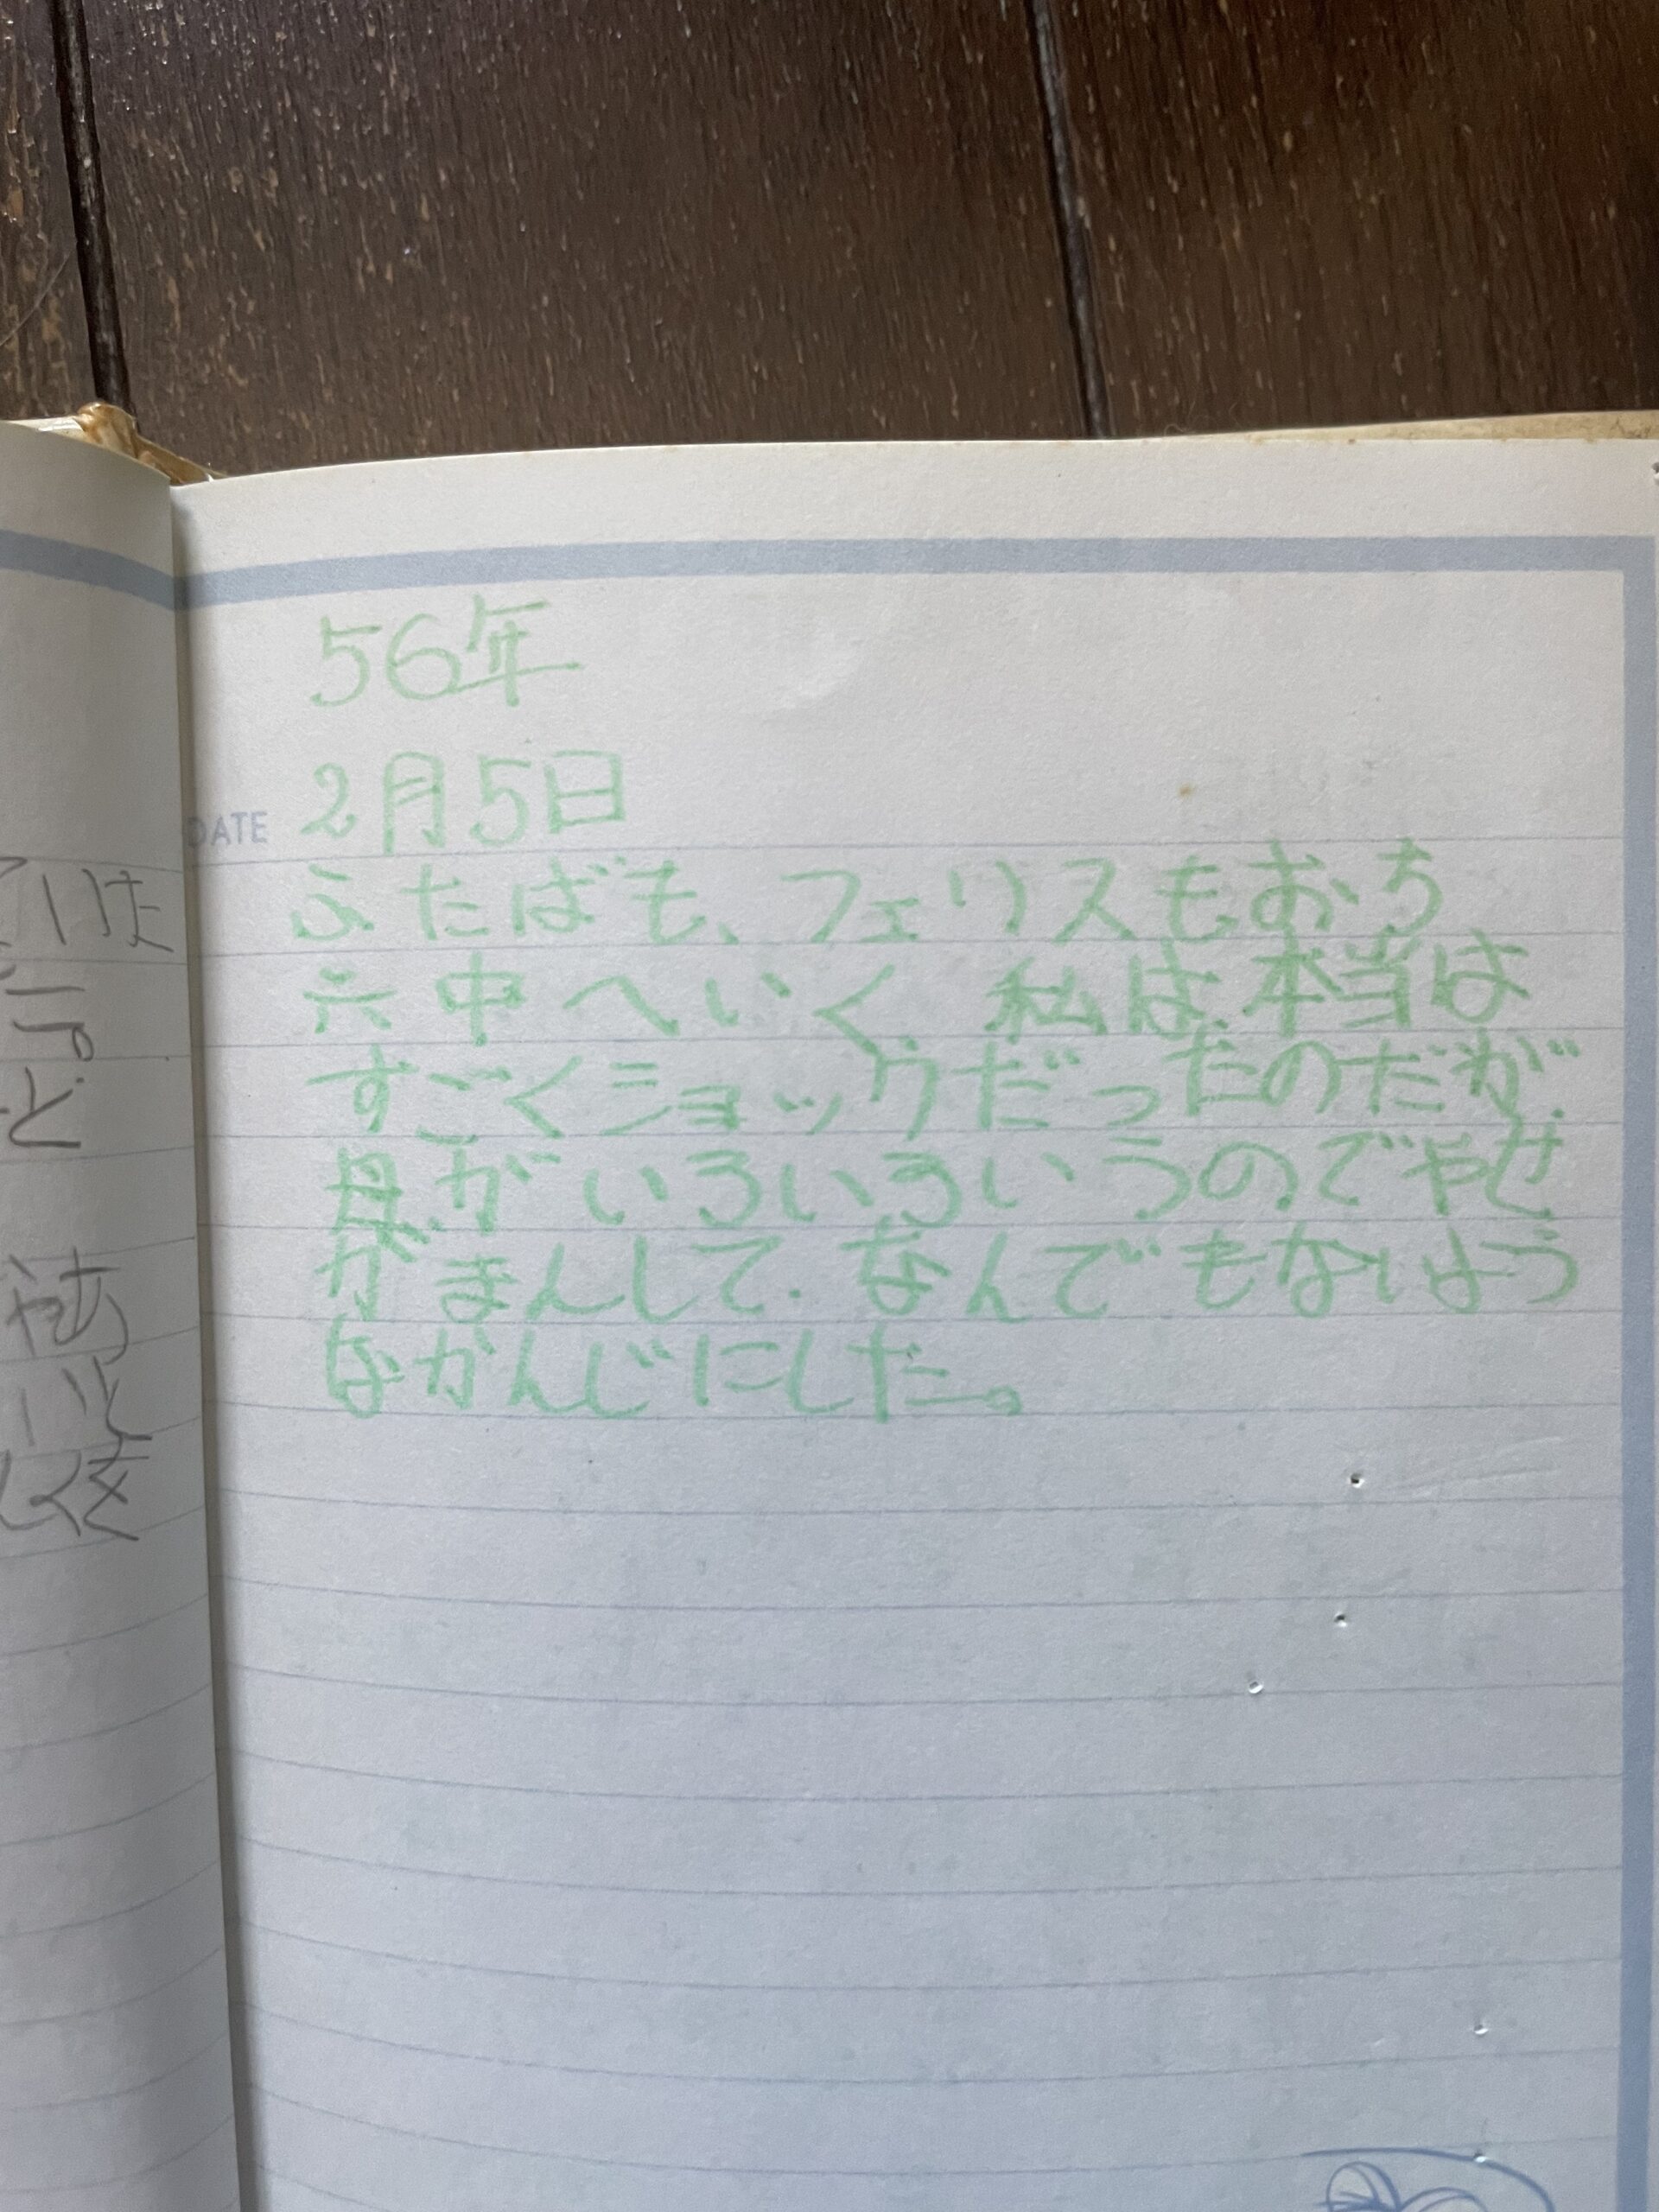 56年
2月5日
DATE
ふたばも、フェリスもおち
六中へいく。私は、本当は
すごくショックだったのだが、
母がいろいろいうのでやせ
がまんして、なんでもないよう
なかんじにした。